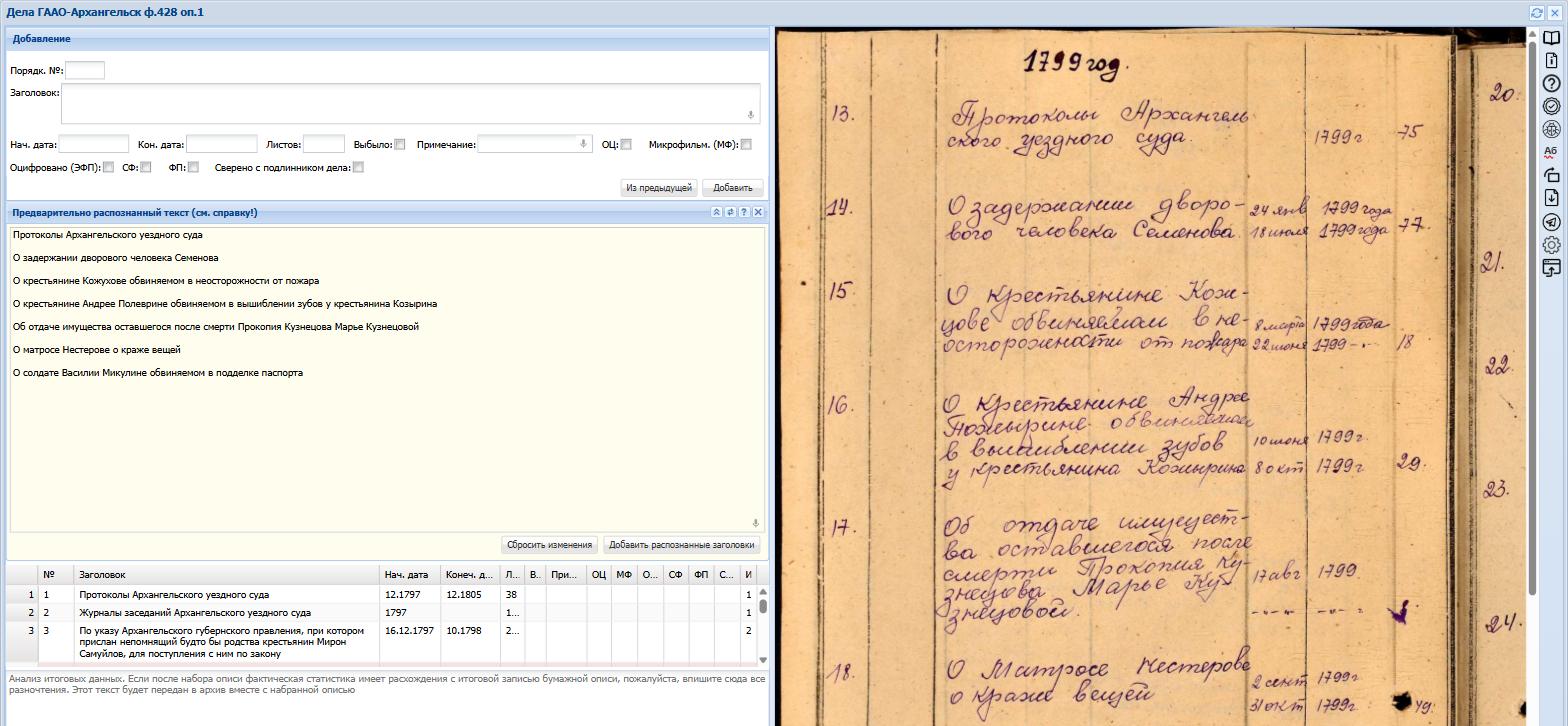 Дела ГААО-Архангельск ф.428 оп.1
Добавление
Порядк. №:
Заголовок:
Нач. дата: Кон. дата: Листов: Выбыло: Примечание: ОЦ: Микрофильм. (МФ):
Оцифровано (ЭФП): СФ: ФП: Сверено с подлинником дела:
Из предыдущей Добавить
Предварительно распознанный текст (см. справку!)
Протоколы Архангельского уездного суда
О задержании дворового человека Семенова
О крестьянине Кожухове обвиняемом в неосторожности от пожара
О крестьянине Андрее Полеврине обвиняемом в вышиблении зубов у крестьянина Козырина
Об отдаче имущества оставшегося после смерти Прокопия Кузнецова Марье Кузнецовой
О матросе Нестерове о краже вещей
О солдате Василии Микулине обвиняемом в подделке паспорта
Сбросить изменения Добавить распознанные заголовки
№ Заголовок Нач. дата Конеч. д... Л... В.. При... ОЦ МФ О... СФ ФП С... И
1 1 Протоколы Архангельского уездного суда 12.1797 12.1805 38 1
2 2 Журналы заседаний Архангельского уездного суда 1797 1... 1
3 3 По указу Архангельского губернского правления, при котором 16.12.1797 10.1798 2... 2
прислан непомнящий будто бы родства крестьянин Мирон
Самуйлов, для поступления с ним по закону
Анализ итоговых данных. Если после набора описи фактическая статистика имеет расхождения с итоговой записью бумажной описи, пожалуйста, впишите сюда все
разночтения. Этот текст будет передан в архив вместе с набранной описью
1799 год.
13. Протоколы Архангель
ского уездного суда. 1799г 75
14. О задержании дворо-
вого человека Семенова.
24 янв 1799 года
18 июля 1799 года 77.
15 О крестьянине Кож-
цове обвиняемом в не-
осторожности от пожара
8 марта 1799 года
22 июня 1799 -..- 18
16. О крестьянине Андрее
обвиняемом
в вышиблении зубов
у крестьянина Кожырина
10 июня 1799г.
8 окт 1799г 29.
17. Об отдаче имущест-
ва оставшегося после
смерти Прокопия Ку-
знецова Марье Куз-
знецовой.
17 авг 1799.
18. О Матросе Нестерове
о краже вещей
2 сент 1799г
31 окт 1799г. 49.
20.
21.
22.
23.
24.
Аб